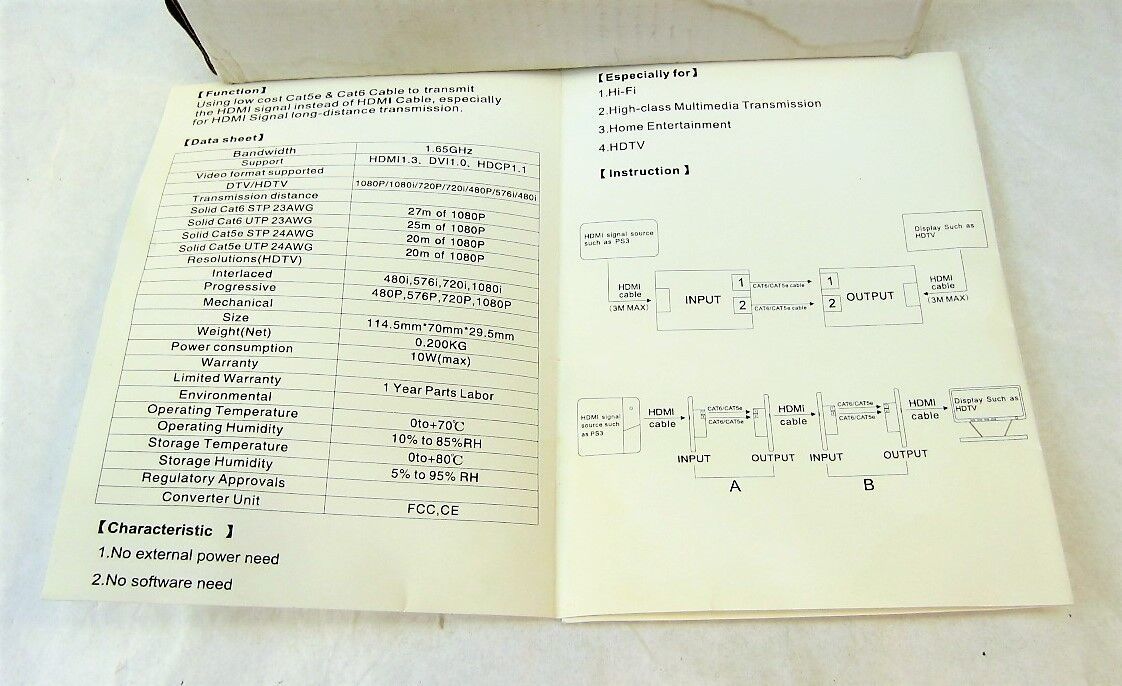 【Function】
Using low cost Cat5e & Cat6 Cable to transmit
the HDMI signal instead of HDMI Cable, especially
for HDMI Signal long-distance transmission.
【Data sheet】
Bandwidth 1.65GHz
Support HDMI1.3, DVI1.0, HDCP1.1
Video format supported
DTV/HDTV 1080P/1080i/720P/720i/480P/576i/480i
Transmission distance
Solid Cat6 STP 23AWG 27m of 1080P
Solid Cat6 UTP 23AWG 25m of 1080P
Solid Cat5e STP 24AWG 20m of 1080P
Solid Cat5e UTP 24AWG 20m of 1080P
Resolutions(HDTV)
Interlaced 480i,576i,720i,1080i
Progressive 480P,576P,720P,1080P
Mechanical
Size 114.5mm*70mm*29.5mm
Weight(Net) 0.200KG
Power consumption 10W(max)
Warranty
Limited Warranty 1 Year Parts Labor
Environmental
Operating Temperature 0to+70℃
Operating Humidity 10% to 85%RH
Storage Temperature 0to+80℃
Storage Humidity 5% to 95% RH
Regulatory Approvals
Converter Unit FCC,CE
【Characteristic 】
1.No external power need
2.No software need
【Especially for】
1.Hi-Fi
2.High-class Multimedia Transmission
3.Home Entertainment
4.HDTV
【Instruction】
HDMI signal source
such as PS3
Display Such as
HDTV
HDMI
cable
(3M MAX)
INPUT
1
2
CAT6/CAT5e cable
CAT6/CAT5e cable
1
2
OUTPUT
HDMI
cable
(3M MAX)
HDMI signal
source such
as PS3
HDMI
cable
CAT6/CAT5e
CAT6/CAT5e
HDMi
cable
CAT6/CAT5e
CAT6/CAT5e
HDMI
cable
Display Such as
HDTV
INPUT OUTPUT INPUT OUTPUT
A B